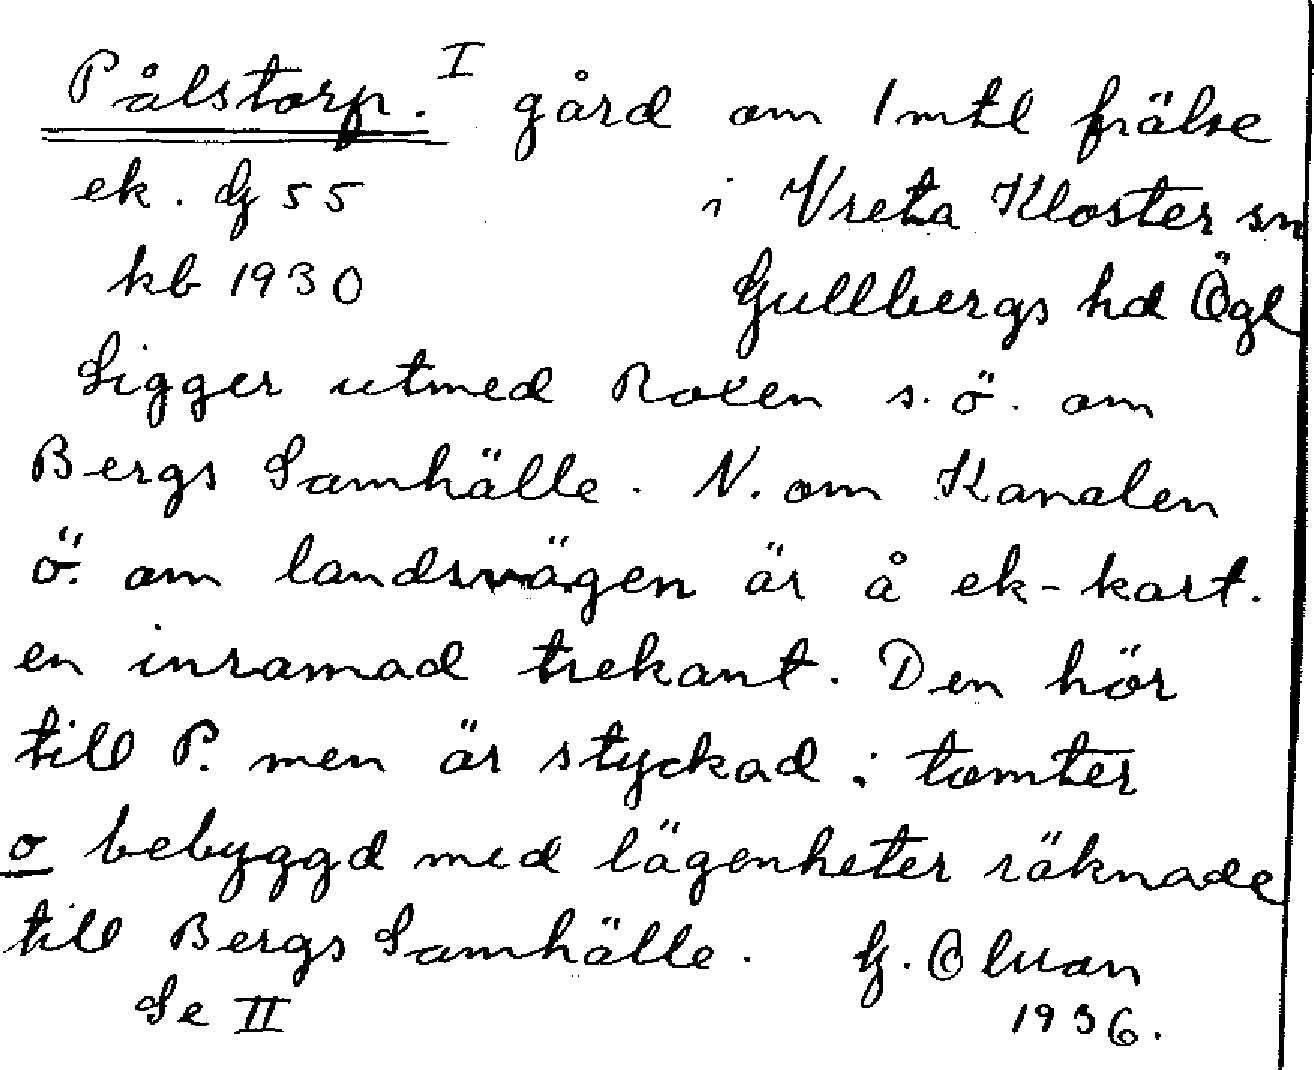 Pålstorp. I gård om 1 mtl frälse
ek. G 55 i Vreta Kloster sn
kb 1930 Gullbergs hd Ögl
Ligger utmed Roxen s.ö. om
Bergs Samhälle. N. om Kanalen
ö. om landsvägen är å ek-kart.
en inramad trekant. Den hör
till P. men är styckad i tomter
o bebyggd med lägenheter räknade
till Bergs Samhälle. G.
Se II 1936.